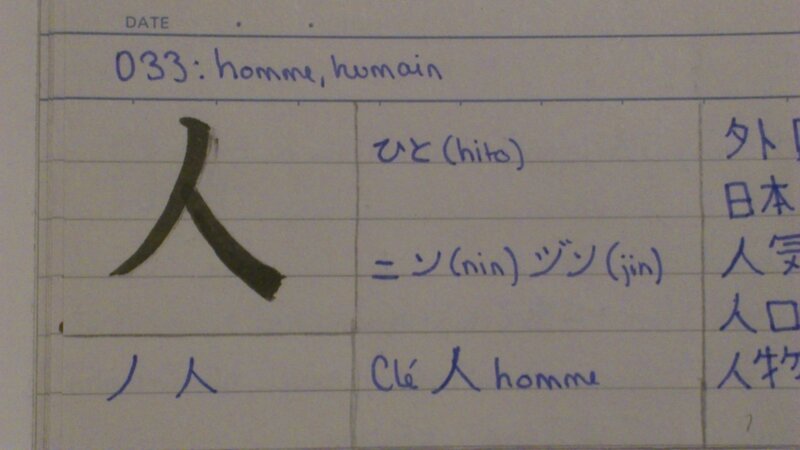 DATE
033: homme, humain
人
ひと (hito)
ニン (nin) ジン (jin)
ノ 人
Clé 人 homme
外
日本
人気
人口
人物